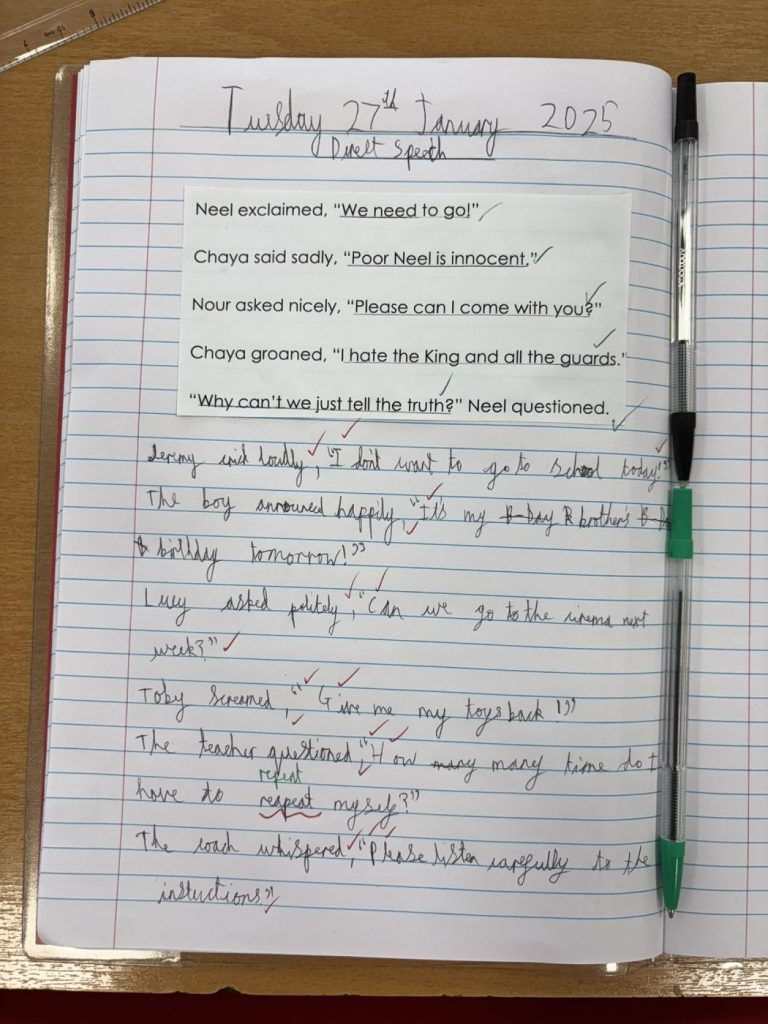 Tuesday 27th January 2025
Direct Speech
Neel exclaimed, “We need to go!”
Chaya said sadly, “Poor Neel is innocent.”
Nour asked nicely, “Please can I come with you?”
Chaya groaned, “I hate the King and all the guards.”
“Why can’t we just tell the truth?” Neel questioned.
Jeremy cried loudly, “I don't want to go to school today!”
The boy announced happily, “It's my B-Day R brother's B-Da
birthday tomorrow!”
Lucy asked politely, “Can we go to the cinema next
week?”
Toby screamed, “Give me my toys back!”
The teacher questioned, “How many many time do I
repeat
have to reapeat myself?”
The coach whispered, “Please listen carefully to the
instuctions”